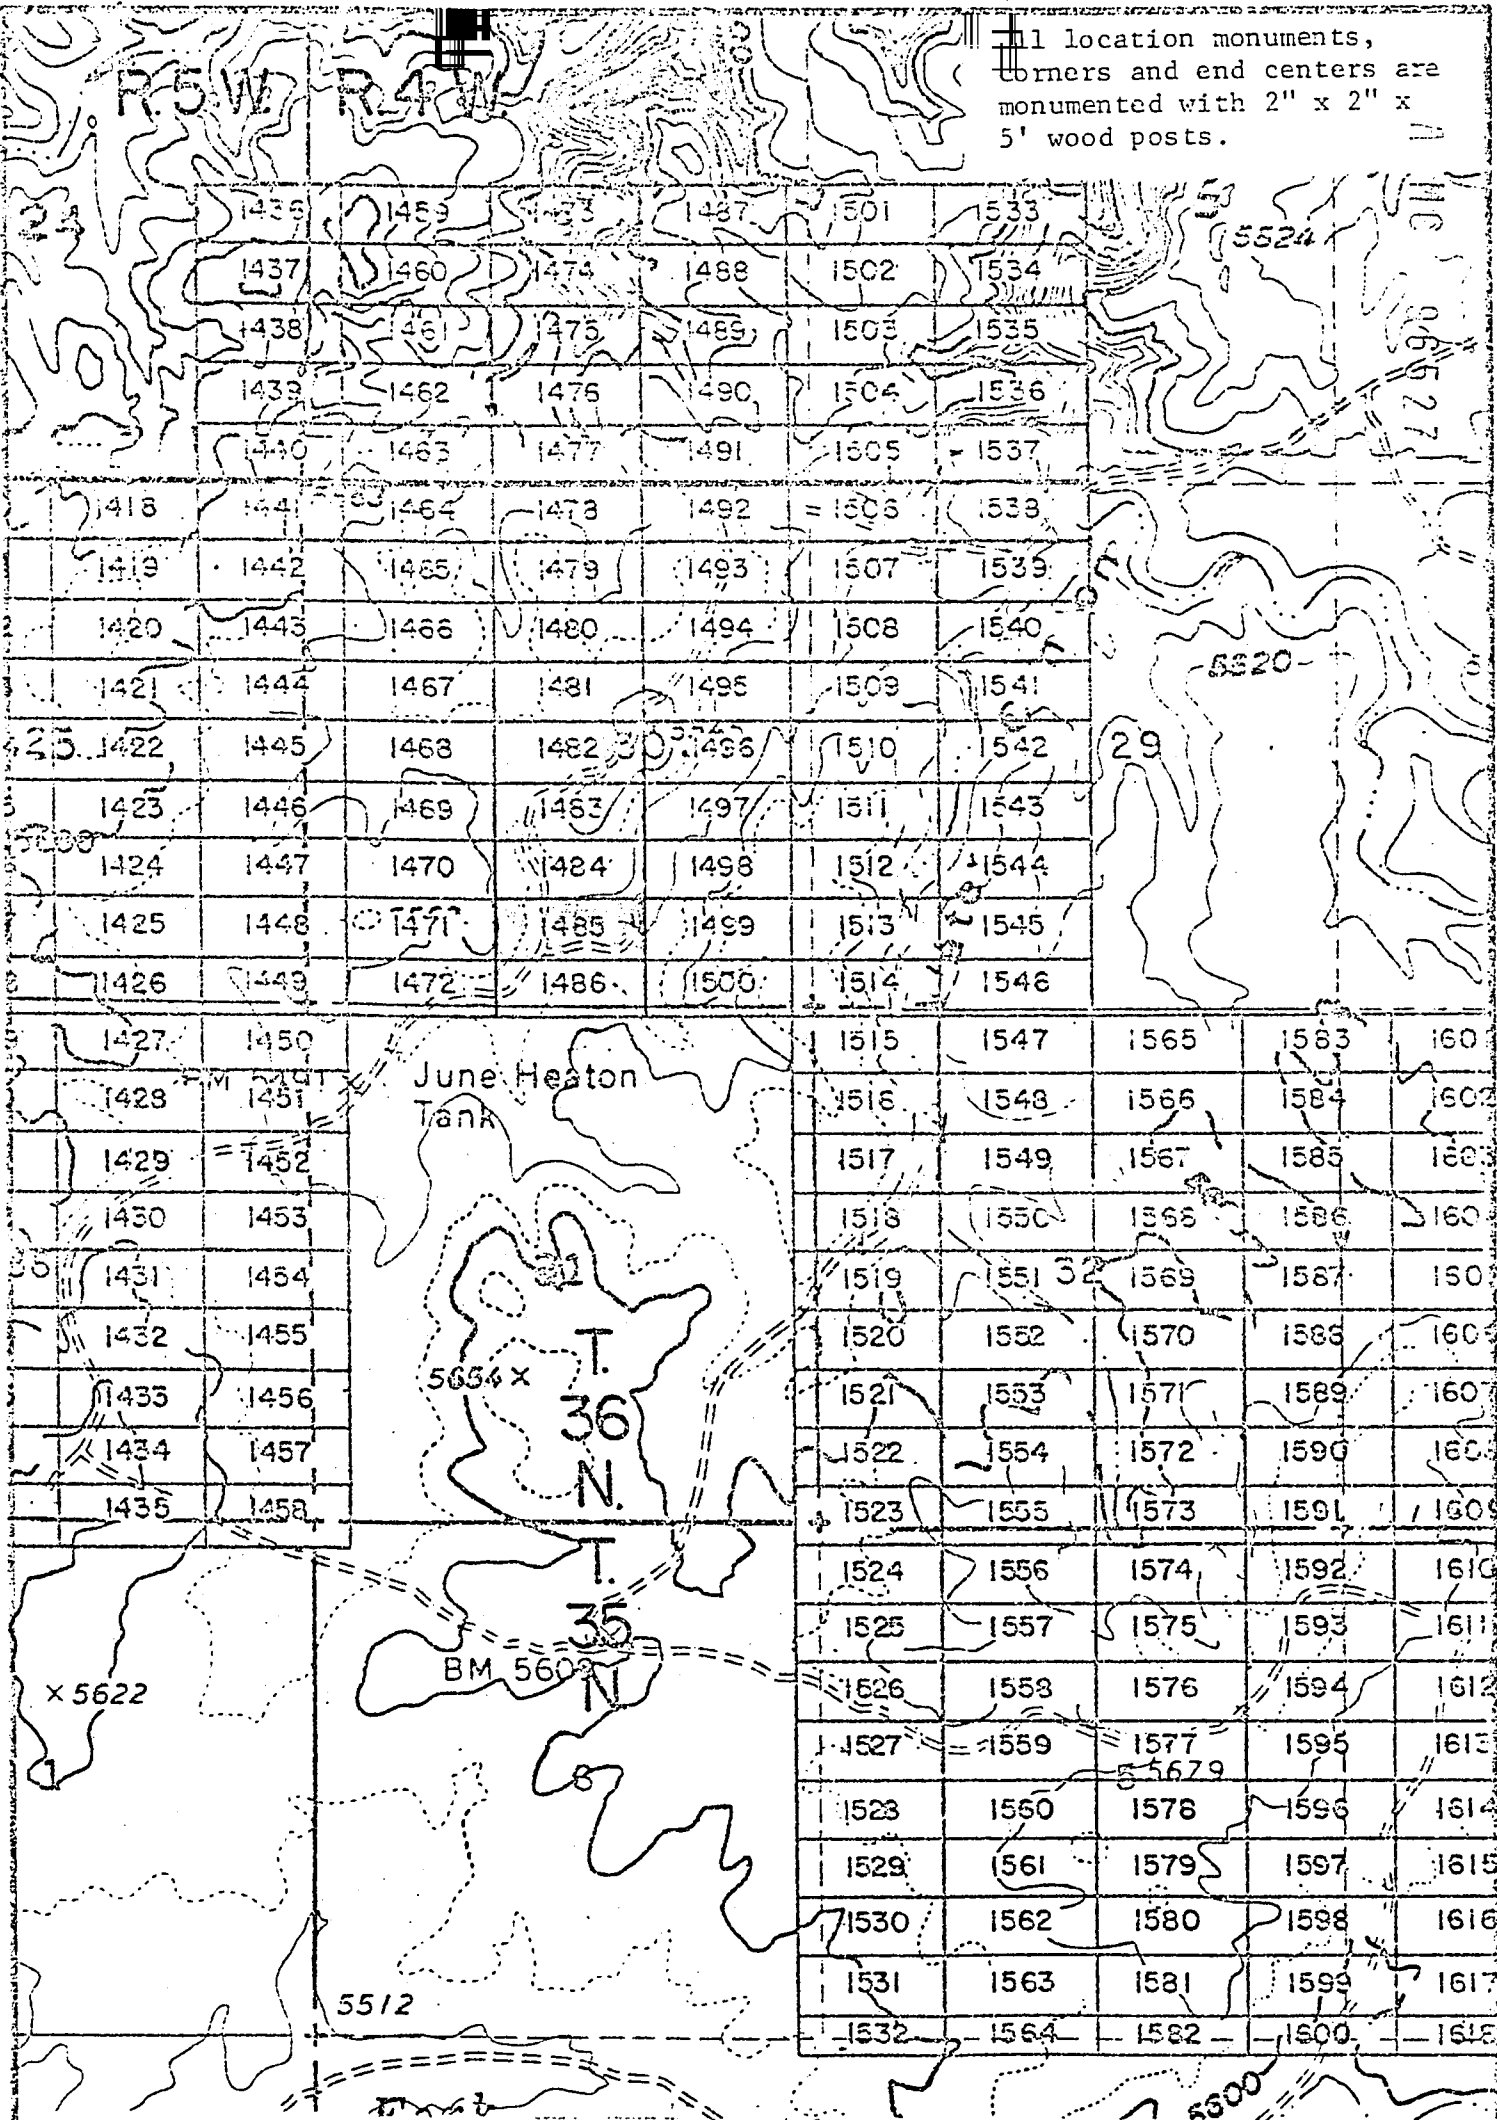 R.5W. R.4W.
11 location monuments,
corners and end centers are
monumented with 2" x 2" x
5' wood posts.
24 1436 1459 1487 1501 1533
5524
1437 1460 1474 1488 1502 1534
1438 1461 1475 1489 1503 1535
1439 1462 1476 1490 1504 1536
1440 1463 1477 1491 1505 1537
1418 1441 1464 1478 1492 1506 1538
1419 1442 1465 1479 1493 1507 1539
1420 1443 1466 1480 1494 1508 1540
5520
1421 1444 1467 1481 1495 1509 1541
1422 1445 1468 1482 30 1496 1510 1542 29
1423 1446 1469 1483 1497 1511 1543
1424 1447 1470 1484 1498 1512 1544
1425 1448 1471 1485 1499 1513 1545
1426 1449 1472 1486 1500 1514 1546
1427 1450 1515 1547 1565 1583 160
June Heaton
Tank
1428 1451 1516 1548 1566 1584 1602
1429 1452 1517 1549 1567 1585 1603
1430 1453 1518 1550 1568 1586 160
1431 1454 1519 1551 32 1569 1587 160
1432 1455 T. 1520 1552 1570 1588 160
5654 X
1433 1456 36 1521 1553 1571 1589 1607
1434 1457 N. 1522 1554 1572 1590 1608
1435 1458 1523 1555 1573 1591 1609
T. 1524 1556 1574 1592 1610
35 1525 1557 1575 1593 1611
BM 560 N
x 5622 1526 1558 1576 1594 1612
1527 1559 1577 1595 1613
1 6 5 5679
1528 1560 1578 1596 1614
1529 1561 1579 1597 1615
1530 1562 1580 1598 1616
1531 1563 1581 1599 1617
5512
1532 1564 1582 1600 1618
5600